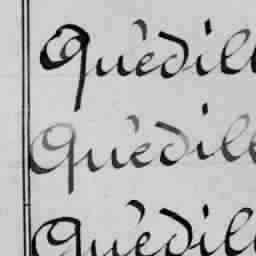 Quédill
Quédill
Quédill